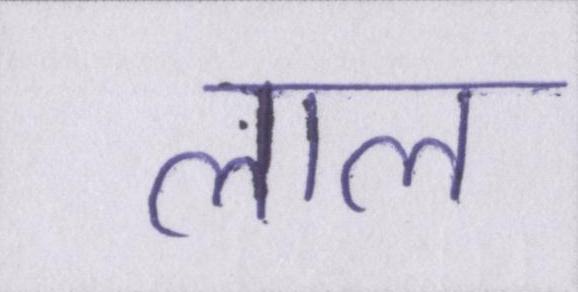 लाल